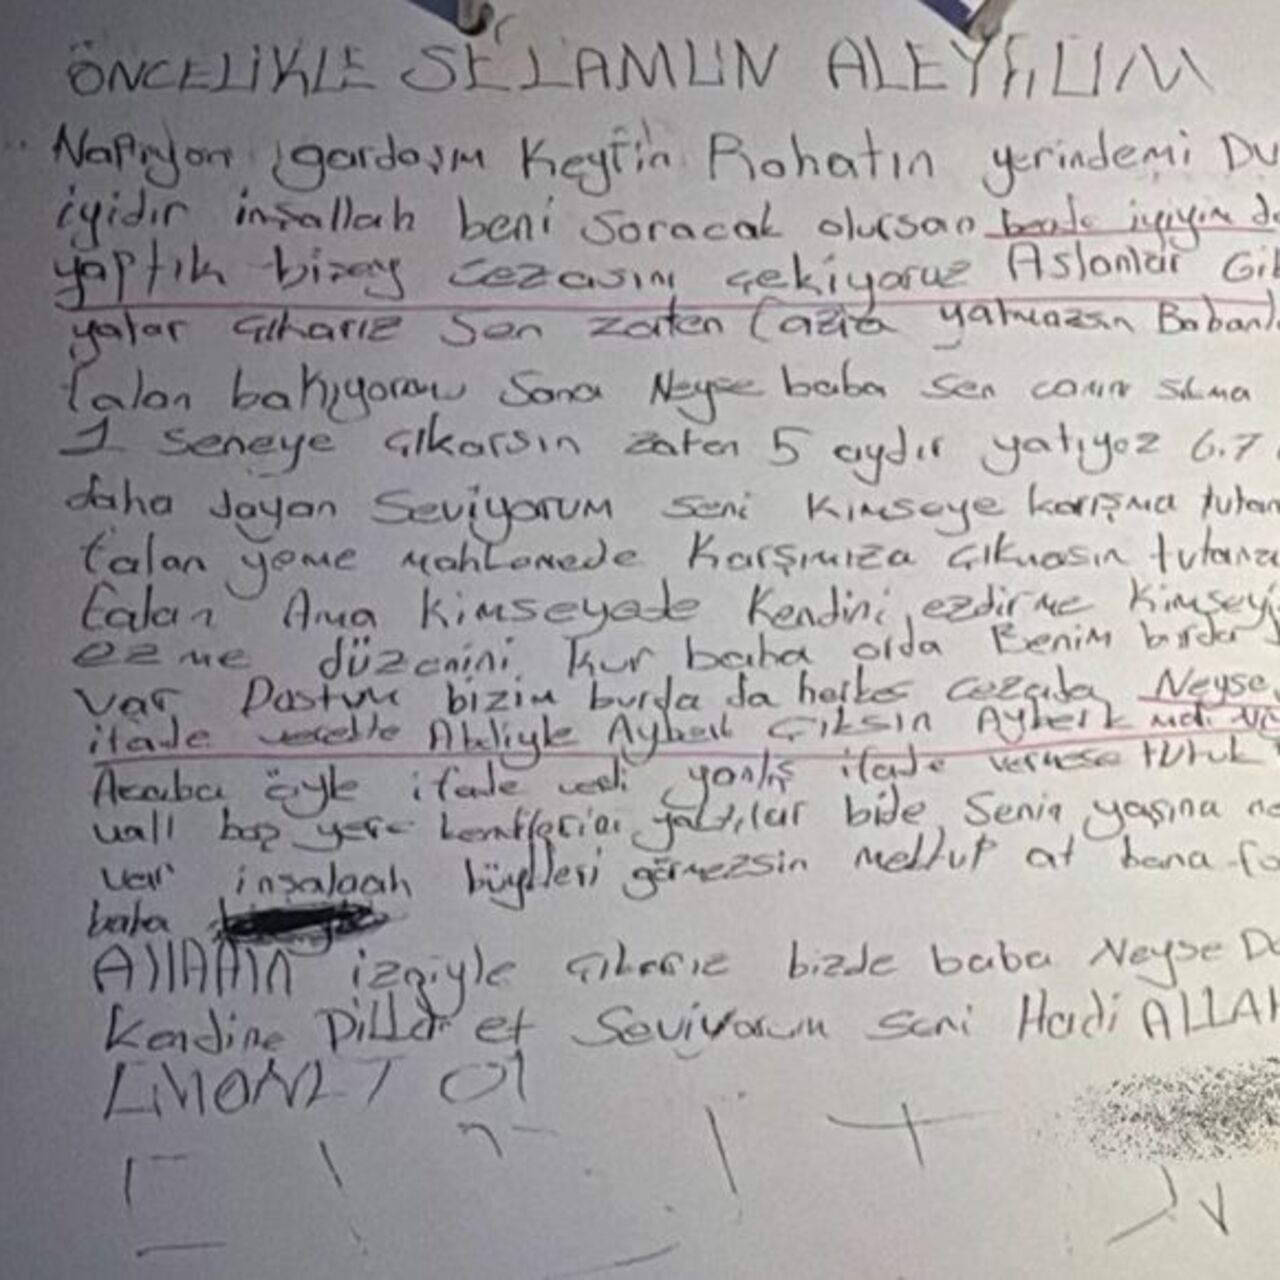 ÖNCELİKLE SELAMUN ALEYKUM
Napıyon gardaşım Keyfin Rahatın yerindemi
iyidir inşallah beni soracak olursan bende iyiyim
yaptık bizey cezasını çekiyoruz Aslanlar Gi
yatar çıkarız sen zaten fazla yatmazsın Baban
falan bakıyoruz sana Neyse baba sen canın sıkma
1 seneye çıkarsın zaten 5 aydır yatıyoz 6.7
daha dayan Seviyorum seni kimseye karışma tutan
falan yeme mahkemede karşımıza çıkmasın tutana
falan Ama kimseyede kendini ezdirme kimseyi
ezme düzenini kur baba orda Benim burda
var Dostum bizim burda da herkes cezada Neyse
ifade verdi Ayberk Çıksın Ayberk
Acaba öyle ifade verdi yanlış ifade verirse tutuk
vall boş yere yattılar bide Senin yaşına
var inşalaah görmezsin mektup at bana fo
baba
Allahın izniyle çıkarız bizde baba Neyse
Kendine Dikkat et Seviyorum seni Hadi ALLAH
EMANET Ol